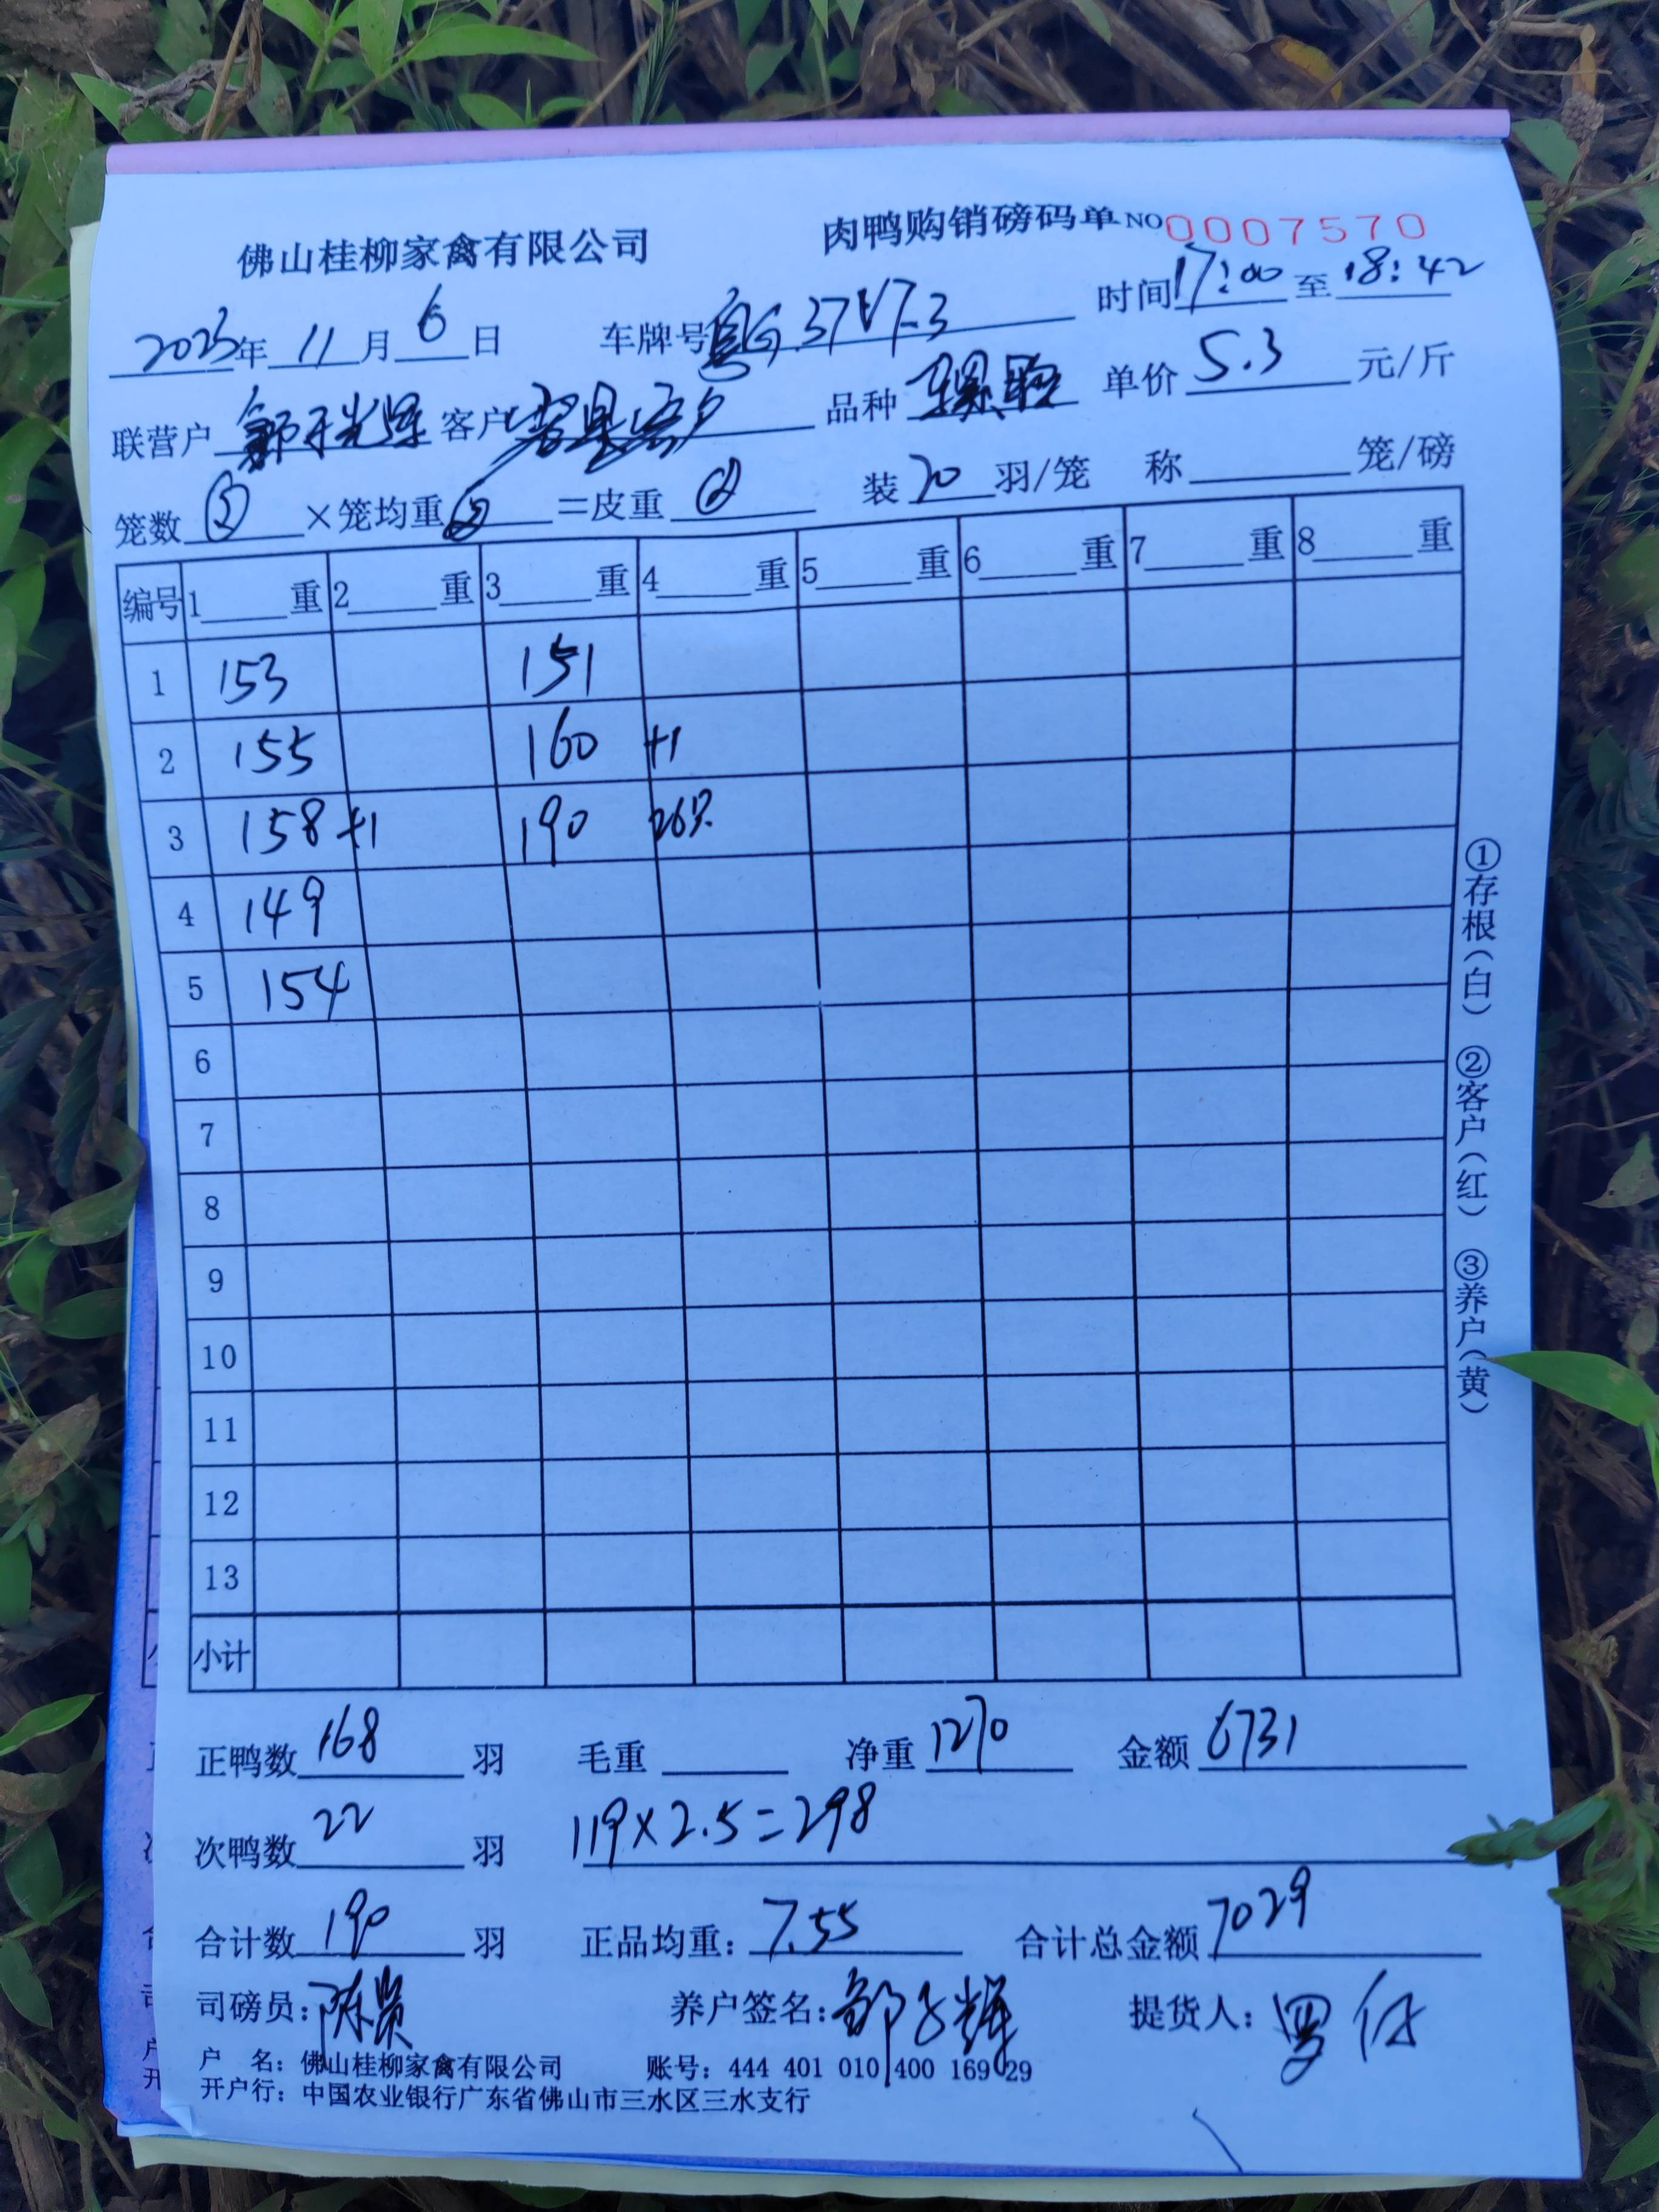 佛山桂柳家禽有限公司 肉鸭购销磅码单 NO 0007570
2023年 11月 6日 车牌号 时间 17:00 至 18:42
联营户 客户 品种 单价 5.3 元/斤
笼数 ×笼均重 =皮重 装 20 羽/笼 称 笼/磅
编号 1 重 2 重 3 重 4 重 5 重 6 重 7 重 8 重
1 153 151
2 155 160 +1
3 158 +1 190 26只
4 149
5 154
6
7
8
9
10
11
12
13
小计
正鸭数 168 羽 毛重 净重 1270 金额 6731
次鸭数 22 羽 119×2.5=298
合计数 190 羽 正品均重: 7.55 合计总金额 7029
司磅员: 养户签名: 提货人:
户 名: 佛山桂柳家禽有限公司 账号: 444 401 010 400 169 29
开户行: 中国农业银行广东省佛山市三水区三水支行
①存根(白) ②客户(红) ③养户(黄)